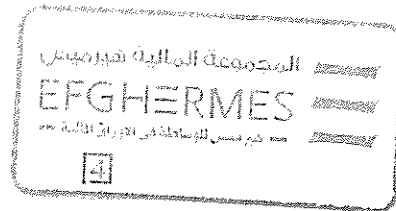 المجموعة المالية هيرميس
EFGHERMES
للوساطة فى الاوراق المالية
4